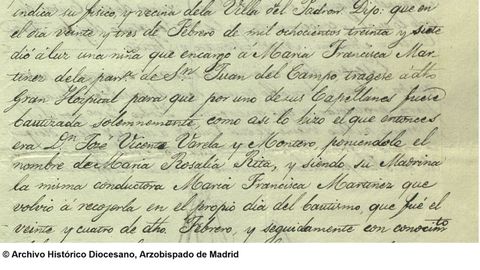 indica su físico, y vecina de la Villa del Padron Dijo: que en
el dia veinte y tres de Febrero de mil ochocientos treinta y siete
dió á luz una niña que encargó á Maria Francisca Mar-
tinez de la parrª. de Sn. Juan del Campo, tragese á dho
Gran Hospital para que por uno de sus Capellanes fuese
bautizada solemnemente, como asi lo hizo el que entonces
era Dn. José Vicente Varela y Montero, poniendola el
nombre de Maria Rosalia Rita, y siendo su Madrina
la misma conductora Maria Francisca Martinez que
volvió á recojerla en el propio dia del bautismo, que fué el
veinte y cuatro de dho. Febrero, y seguidamente con conocimto
© Archivo Histórico Diocesano, Arzobispado de Madrid